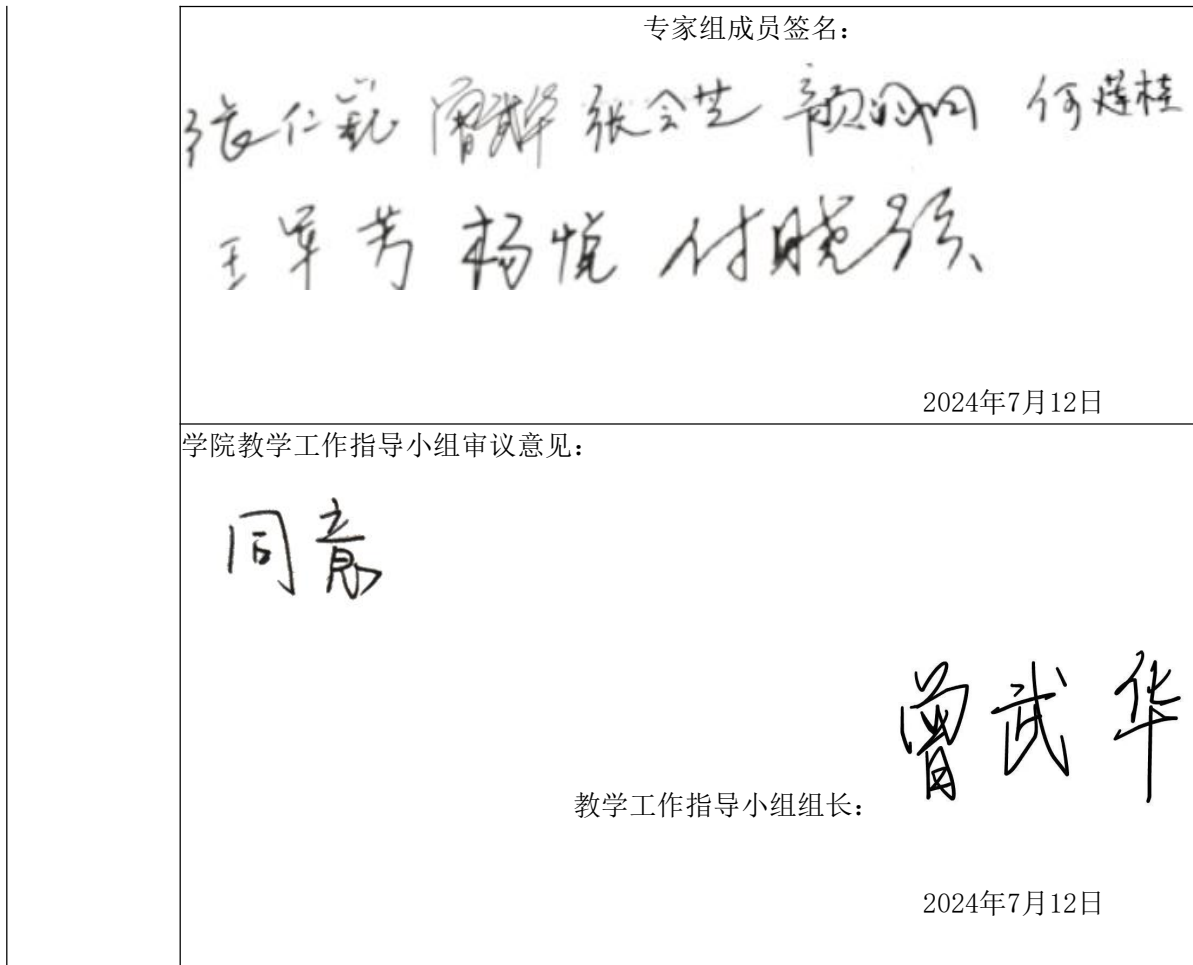 专家组成员签名：
张仁 曾武华 张会芝 何莲桂
王军芳 杨悦 付晓强
2024年7月12日
学院教学工作指导小组审议意见：
同意
曾武华
教学工作指导小组组长：
2024年7月12日